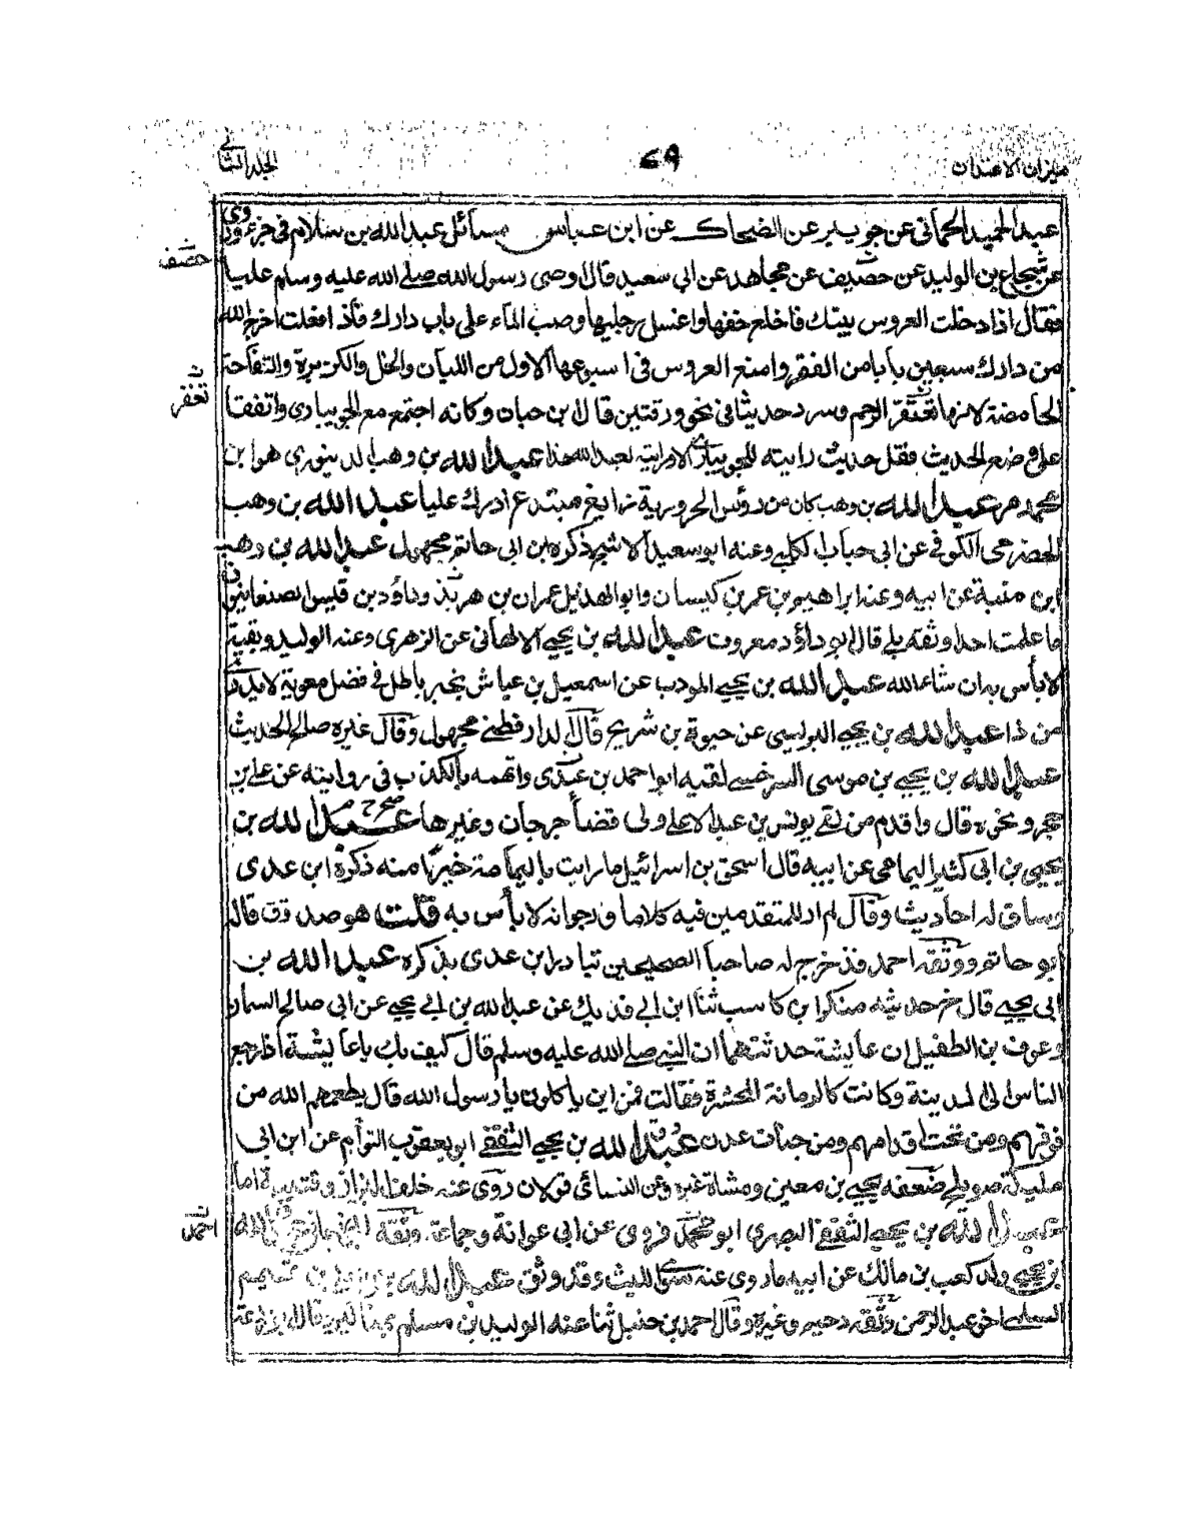 ميزان الاعتدال
٧٩
الجلد الثاني
عبد الحميد الحماني عن جويبر عن الضحاك عن ابن عباس مسائل عبد الله بن سلام في جزء وروى
عن شجاع بن الوليد عن خصيف عن مجاهد عن ابي سعيد قال اوصى رسول الله صلى الله عليه وسلم عليا
خصيف
فقال اذا دخلت العروس بيتك فاخلع خفها واغسل رجليها وصب الماء على باب دارك فاذا فعلت اخرج الله
من دارك سبعين بابا من الفقر وامنع العروس في اسبوعها الاول من اللبان والخل والكزبرة والتفاحة
الحامضة لانها تعقر الرحم وسرد حديثا في نحو ورقتين قال ابن حبان وكانه اجتمع مع الجويباري واتفقا
على وضع الحديث فقل حديث رايته للجويباري الا ورايته لعبد الله هذا عبد الله بن وهب الدينوري هو ابن
محمد مر عبد الله بن وهب كان من رؤس الحرورية زايغ مبتدع ادرك عليا عبد الله بن وهب
الحضرمي الكوفي عن ابي حباب الكلبي وعنه ابو سعيد الاشج ذكره ابن ابي حاتم مجهول عبد الله بن وهب
ابن منبه عن ابيه وعنه ابراهيم بن عمر بن كيسان وابو الهذيل عمران بن هربذ وداؤد بن قيس الصنعانيون
ما علمت احدا وثقه بلى قال ابو داؤد معروف عبد الله بن يحيى الالهاني عن الزهري وعنه الوليد وبقية
لا باس به ان شاء الله عبد الله بن يحيى المودب عن اسمعيل بن عياش بخبر باطل في فضل معوية لا يدرى
من ذا عبد الله بن يحيى البرلسي عن حيوة بن شريح قال الدارقطني مجهول وقال غيره صالح الحديث
عبد الله بن يحيى بن موسى السرخسي لقيه ابو احمد بن عدي واتهمه بالكذب في روايته عن علي بن
حجر ونحوه قال واقدم من لقي يونس بن عبد الاعلى ولي قضا جرجان وغيرها صح عبد الله بن
يحيى بن ابي كثير اليمامي عن ابيه قال اسحق بن اسرائيل ما رايت باليمامة خيرا منه ذكره ابن عدي
وساق له احاديث وقال لم ار للمتقدمين فيه كلاما وارجو انه لا باس به قلت هو صدوق قاله
ابو حاتم ووثقه احمد قد خرج له صاحبا الصحيحين تبادر ابن عدي بذكره عبد الله بن
ابي يحيى قال خ حديثه منكر ابن كاسب ثنا ابن ابي فديك عن عبد الله بن ابي يحيى عن ابي صالح السمان
وعوف بن الطفيل ان عايشة حدثتهما ان النبي صلى الله عليه وسلم قال كيف بك يا عايشة اذا رجع
الناس الى المدينة وكانت كالرمانة المحشوة فقالت فمن اين ياكلون يا رسول الله قال يطعمهم الله من
فوقهم ومن تحت اقدامهم ومن جنات عدن عبد الله بن يحيى الثقفي ابو يعقوب التوأم عن ابن ابي
مليكة صويلح ضعفه يحيى بن معين ومشاه غيره وعن النسائي قولان روى عنه خلف البزاز وقتيبة اما
عبد الله بن يحيى الثقفي البصري ابو محمد فروى عن ابي عوانة وجماعة وثقه الجوزجاني عبد الله
ابن يحيى ولد كعب بن مالك عن ابيه ما روى عنه سوى الليث وقد وثق عبد الله بن يزيد بن تميم
السلمي اخو عبد الرحمن وثقه دحيم وغيره وقال احمد بن حنبل ثنا عنه الوليد بن مسلم